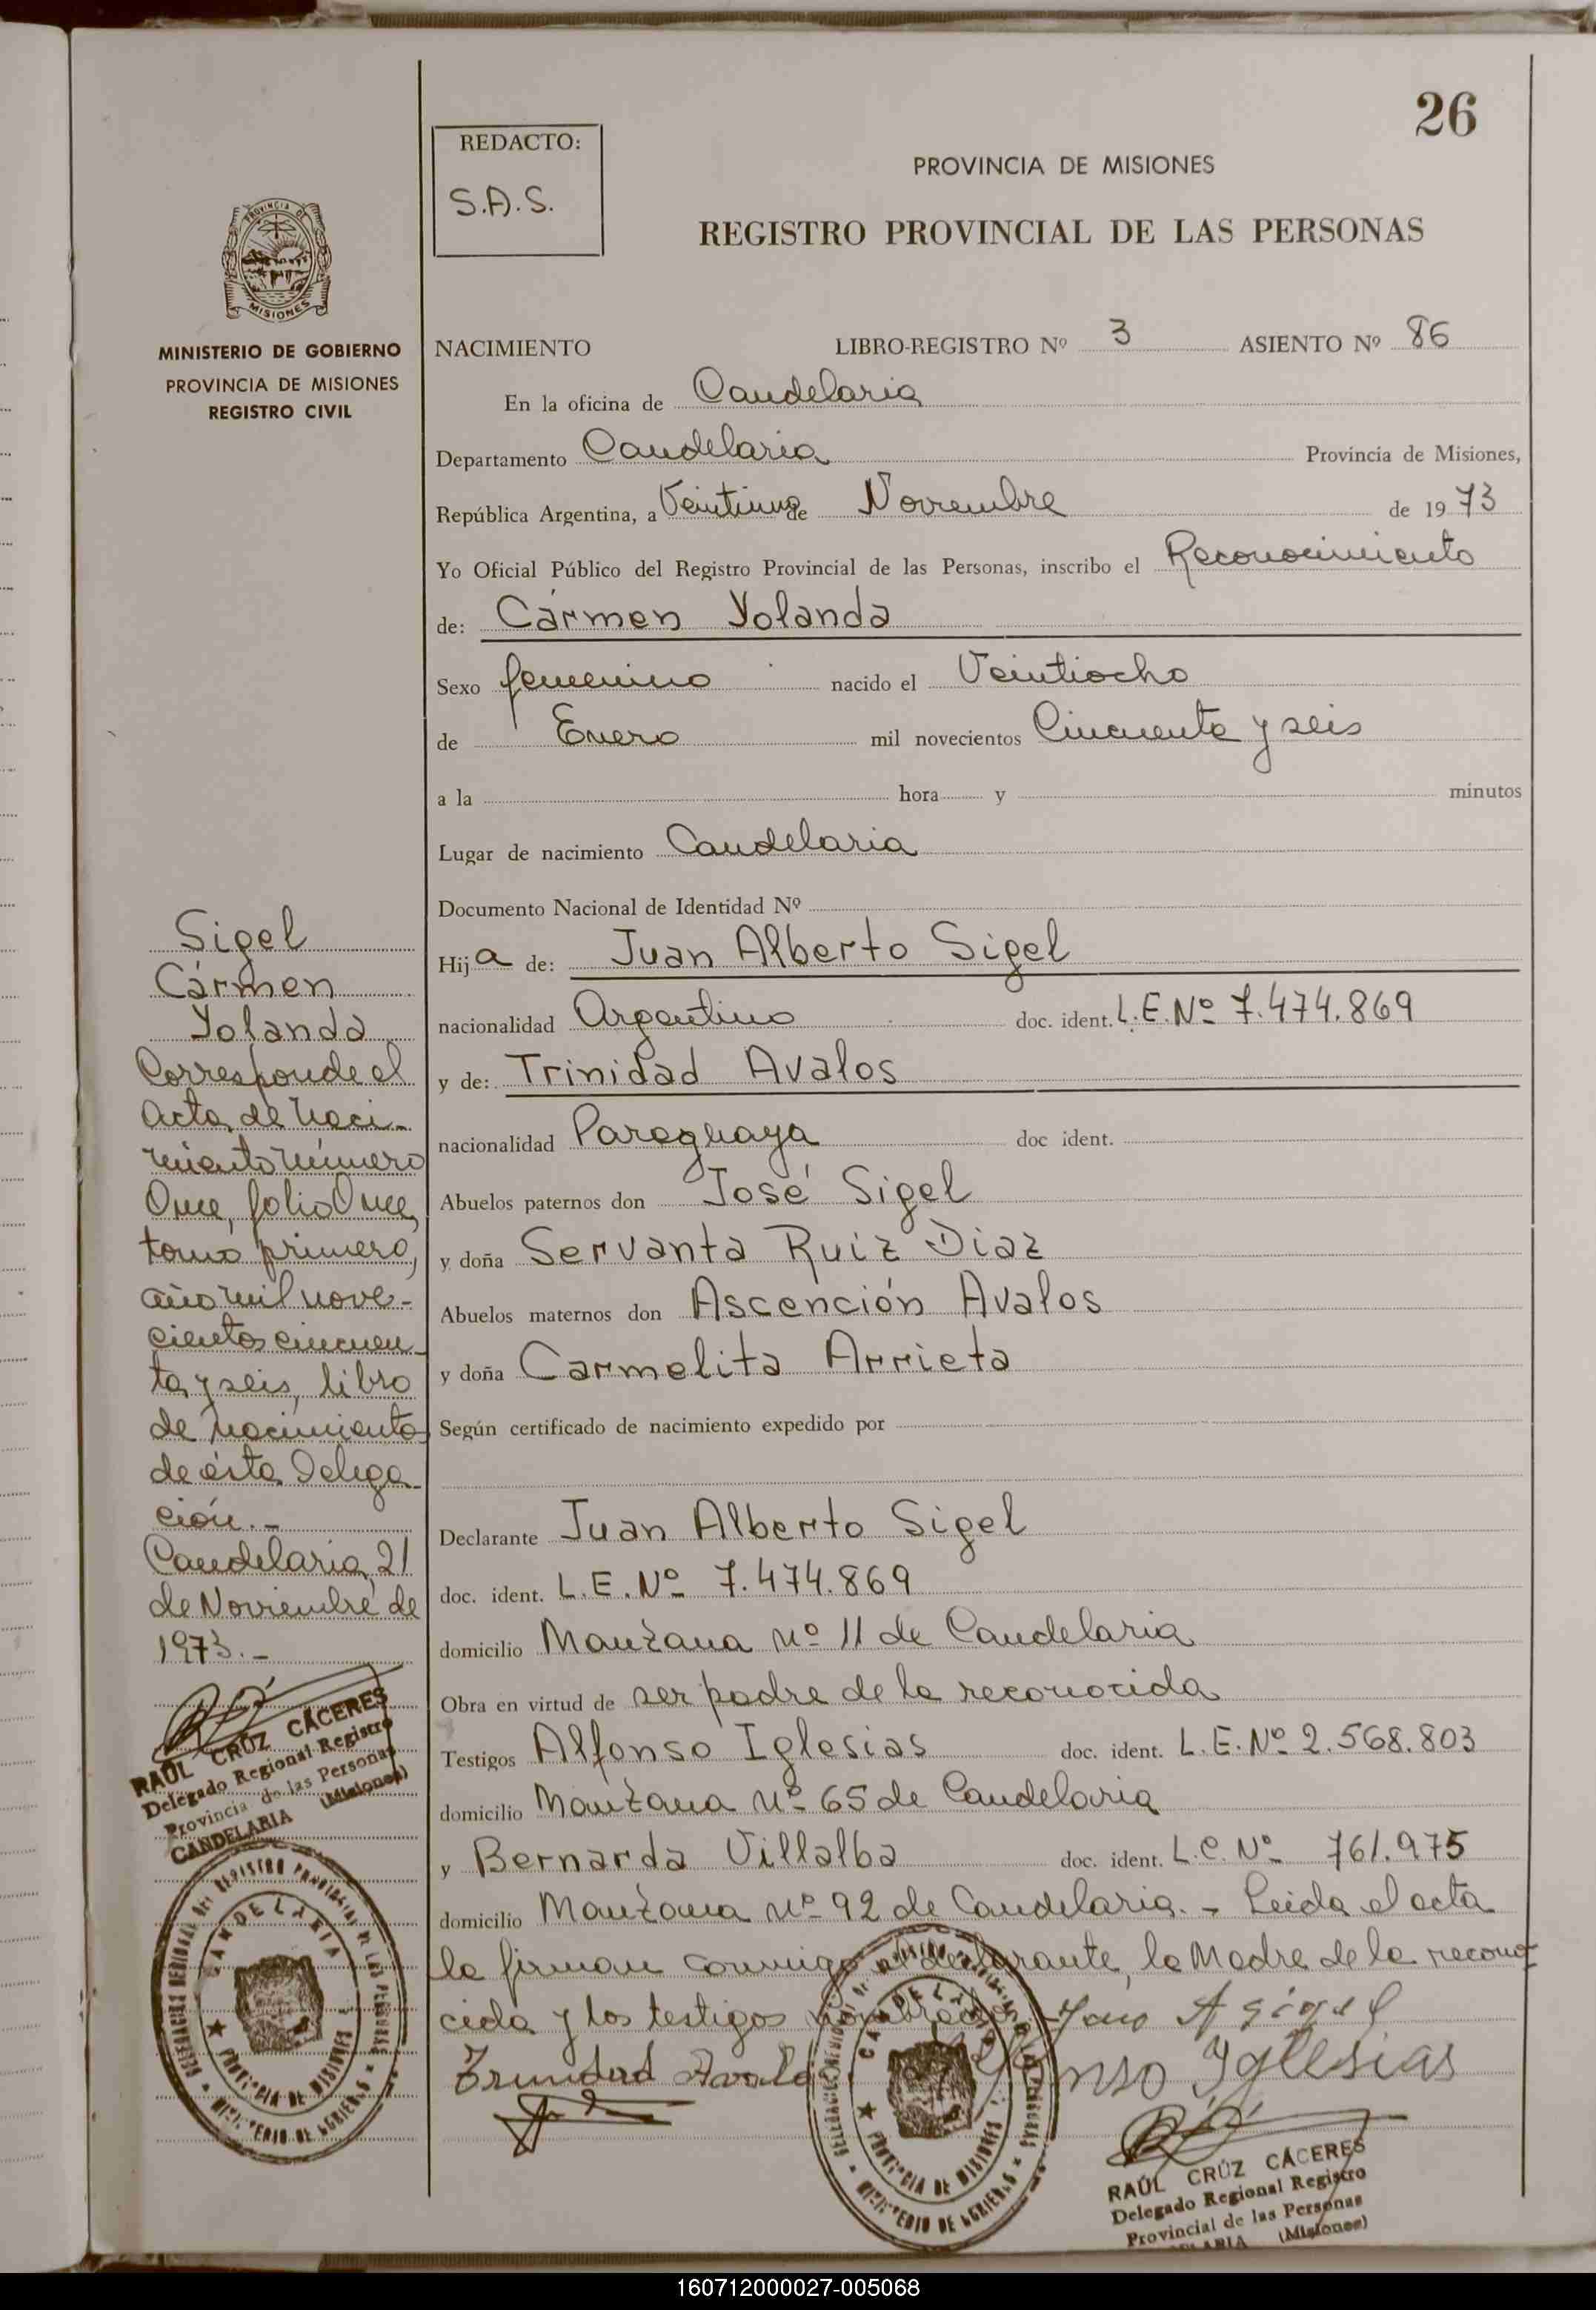 26
REDACTO:
S.A.S.
PROVINCIA DE MISIONES
REGISTRO PROVINCIAL DE LAS PERSONAS
PROVINCIA DE
MISIONES
MINISTERIO DE GOBIERNO
PROVINCIA DE MISIONES
REGISTRO CIVIL
NACIMIENTO LIBRO-REGISTRO Nº 3 ASIENTO Nº 86
En la oficina de Candelaria
Departamento Candelaria Provincia de Misiones,
República Argentina, a Veintiuno de Noviembre de 1973
Yo Oficial Público del Registro Provincial de las Personas, inscribo el Reconocimiento
de: Cármen Yolanda
Sexo femenino nacido el Veintiocho
de Enero mil novecientos Cincuenta y seis
a la hora y minutos
Lugar de nacimiento Candelaria
Documento Nacional de Identidad Nº
Hija de: Juan Alberto Sigel
nacionalidad Argentino doc. ident. L.E.Nº 7.474.869
y de: Trinidad Avalos
nacionalidad Paraguaya doc ident.
Abuelos paternos don José Sigel
y doña Servanta Ruiz Diaz
Abuelos maternos don Ascención Avalos
y doña Carmelita Arrieta
Según certificado de nacimiento expedido por
Declarante Juan Alberto Sigel
doc. ident. L.E.Nº 7.474.869
domicilio Manzana nº 11 de Candelaria
Obra en virtud de ser padre de la reconocida
Testigos Alfonso Iglesias doc. ident. L.E.Nº 2.568.803
domicilio Manzana nº 65 de Candelaria
y Bernarda Villalba doc. ident. L.C.Nº 761.975
domicilio Manzana nº 92 de Candelaria.- Leida el acta
la firman conmigo el declarante, la Madre de la recono-
cida y los testigos nombrados
Trinidad Avalo
Yglesias
RAÚL CRÚZ CÁCERES
Delegado Regional Registro
Provincial de las Personas
(Misiones)
Sigel
Cármen
Yolanda
Corresponde el
acta de naci-
miento número
Once, folio Once,
tomo primero,
año mil nove-
cientos cincuen-
ta y seis, libro
de nacimientos
de ésta Delega-
ción.-
Candelaria, 21
de Noviembre de
1973.-
RAÚL CRÚZ CÁCERES
Delegado Regional Registro
Provincia de las Personas
CANDELARIA (Misiones)
CANDELARIA
PROVINCIA DE MISIONES
CANDELARIA
PROVINCIA DE MISIONES
160712000027-005068